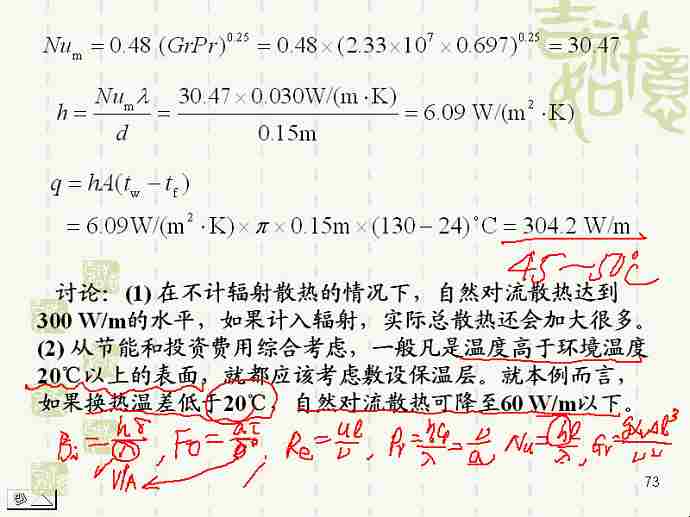 Nu_m = 0.48 (GrPr)^0.25 = 0.48 × (2.33 × 10^7 × 0.697)^0.25 = 30.47
h = Nu_m λ / d = 30.47 × 0.030W/(m·K) / 0.15m = 6.09 W/(m^2·K)
q = hA(t_w − t_f)
= 6.09W/(m^2·K) × π × 0.15m × (130 − 24)°C = 304.2 W/m
45~50℃
讨论: (1) 在不计辐射散热的情况下，自然对流散热达到
300 W/m的水平，如果计入辐射，实际总散热还会加大很多。
(2) 从节能和投资费用综合考虑，一般凡是温度高于环境温度
20℃以上的表面，就都应该考虑敷设保温层。就本例而言，
如果换热温差低于20℃，自然对流散热可降至60 W/m以下。
Bi = , Fo = , Re = ul/ν , Pr = = ν/a , Nu = hl/λ , Gr =
V/A
73